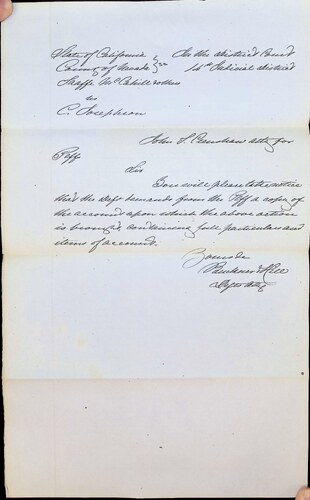 State of California } ss In the district Court
County of Nevada 14th Judicial district
McCahill & others
vs
C. Josephson
John I. Caenshaw atty for
Plff
Sir
You will please take notice
that the deft demands from the Plff a copy of
the account upon which the above action
is brought containing full particulars and
items of account.
Yours &c
& Hill
Defts atty